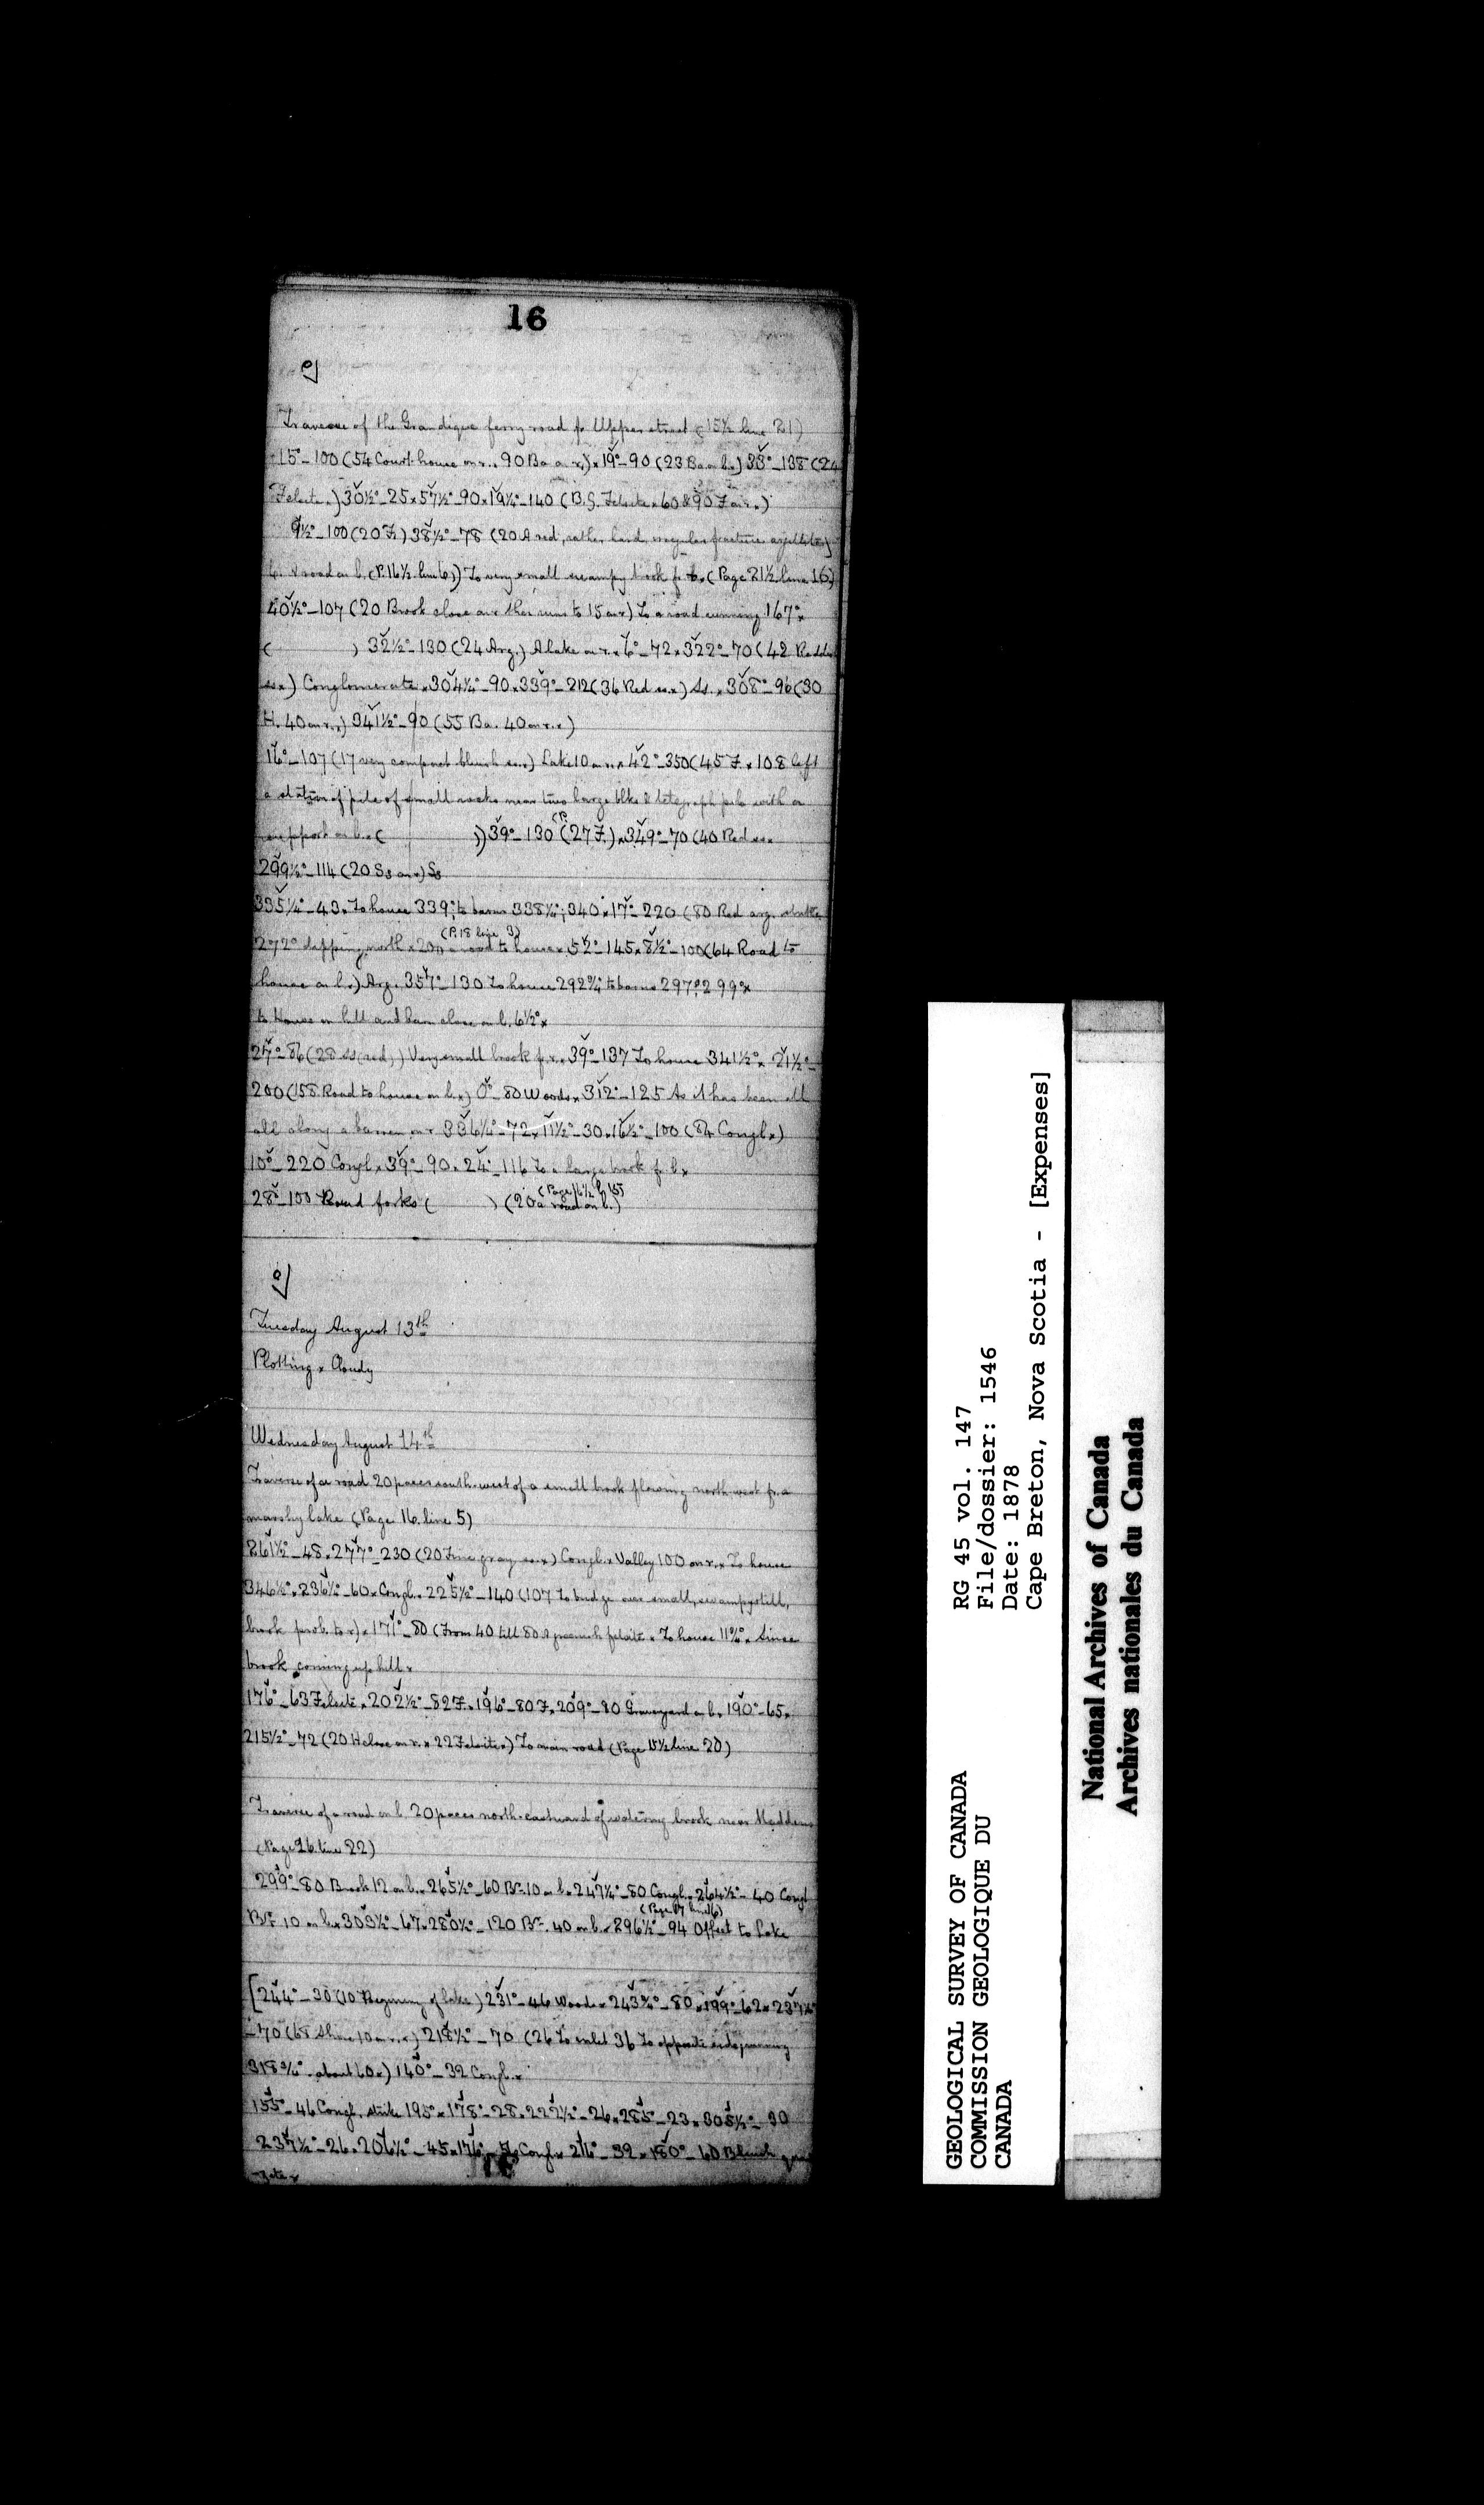 16
Traverse of the Grandique ferry road fr. Upper street (15½ line 21)
15°–100 (54 Court-house on r.. 90 Ba on r.) × 19°–90 (23 Ba on l.) 33°–138 (24
Felsite.) 30½°–25 × 57½°–90 × 19¼°–140 (B.S. Felsite × 60 & 90 F on r.×)
9½°–100 (20 F.) 38½°–78 (20 A red, rather hard, irregular fracture argillite)
& road on l. (P. 16½ line 6)) To very small swampy brook fr. (Page 21½ line 16)
40½°–107 (20 Brook close on r then runs to 15 on r) To a road running 167°×
( ) 32½°–130 (24 Arg.) A lake on r. × 6°–72 × 322°–70 (42 Reddish
ss×) Conglomerate × 304¼°–90 × 339°–212 (36 Red ss.×) Ss. × 308°–96 (30
H. 40 on r.×) 341½°–90 (55 Ba. 40 on r.×)
16°–107 (17 very compact bluish ss.×) Lake 10 on r. × 42°–350 (45 F. × 108 left
a station of pile of small rocks near two large blks & telegraph pole with a
support on l. × ( )) 39°–130 (27 F.) × 349°–70 (40 Red ss.×
299½°–114 (20 Ss on r) Ss
335¼°–43. To house 339°, to barns 338¼°, 340 × 17°–220 (80 Red arg. strike
(P. 18 line 3)
272° dipping north × 200 a road to house × 52°–145 × 8½°–100 (64 Road to
house on l.×) Arg. 357°–130 To house 292¾° to barns 297° 299°×
to House on hill and barn close on l. 6½°×
27°–86 (28 ss (red)) Very small brook fr. r. × 39°–137 To house 341½° × 21½°–
200 (158 Road to house on l.×) 0°–80 Woods × 312°–125 As it has been all
all along a barren on r 336¼°–72 × 11½°–30 × 16½°–100 (84 Congl×)
10°–220 Congl × 39°–90 × 24°–116 To a large brook fr. l ×
28°–100 Road forks ( ) (20 a road on l.)
Tuesday August 13th
Plotting × Cloudy
Wednesday August 14th
Traverse of a road 20 paces south-west of a small brook flowing north-west fr. a
marshy lake (Page 16. line 5)
261½°–48 × 277°–230 (20 Fine gray ss.×) Congl. × Valley 100 on r. × To house
346½° × 236½°–60 × Congl. × 225½°–140 (107 To bridge over small, swampy still,
brook prob. to r) × 171°–80 (From 40 till 80 greenish felsite × To house 11¾° × Since
brook coming up hill ×
176°–63 Felsite × 202½°–82 F. × 196°–80 F. × 209°–80 Graveyard on l. × 190°–65 ×
215½°–72 (20 H close on r. × 22 Felsite ×) To main road (Page 15½ line 20)
Traverse of a road on l. 20 paces north-eastward of watering brook near Maddens
(Page 26 line 22)
299°–80 Brook 12 on l. × 265½°–60 Br. 10 on l. × 247¼°–80 Congl. × 264½°–40 Congl
(Page 17 line 6)
Br. 10 on l. × 303½°–67 × 280½°–120 Br. 40 on l. × 296½°–94 Offset to Lake
[244°–30 (10 Beginning of lake) 231°–46 Woods × 243¾°–80 × 199°–62 × 237¼°
–70 (68 Shore 10 on r.×) 218½°–70 (26 To inlet 36 To opposite side, running
318¾° about 60 ×) 140°–32 Congl. ×
155°–46 Congl. strike 195° × 178°–28 × 222½°–26 × 285°–23 × 305½°–30
237½°–26 × 206½°–45 × 176°– Congl × 216°–32 × 180°–60 Bluish
GEOLOGICAL SURVEY OF CANADA
COMMISSION GEOLOGIQUE DU
CANADA
RG 45 vol. 147
File/dossier: 1546
Date: 1878
Cape Breton, Nova Scotia - [Expenses]
National Archives of Canada
Archives nationales du Canada